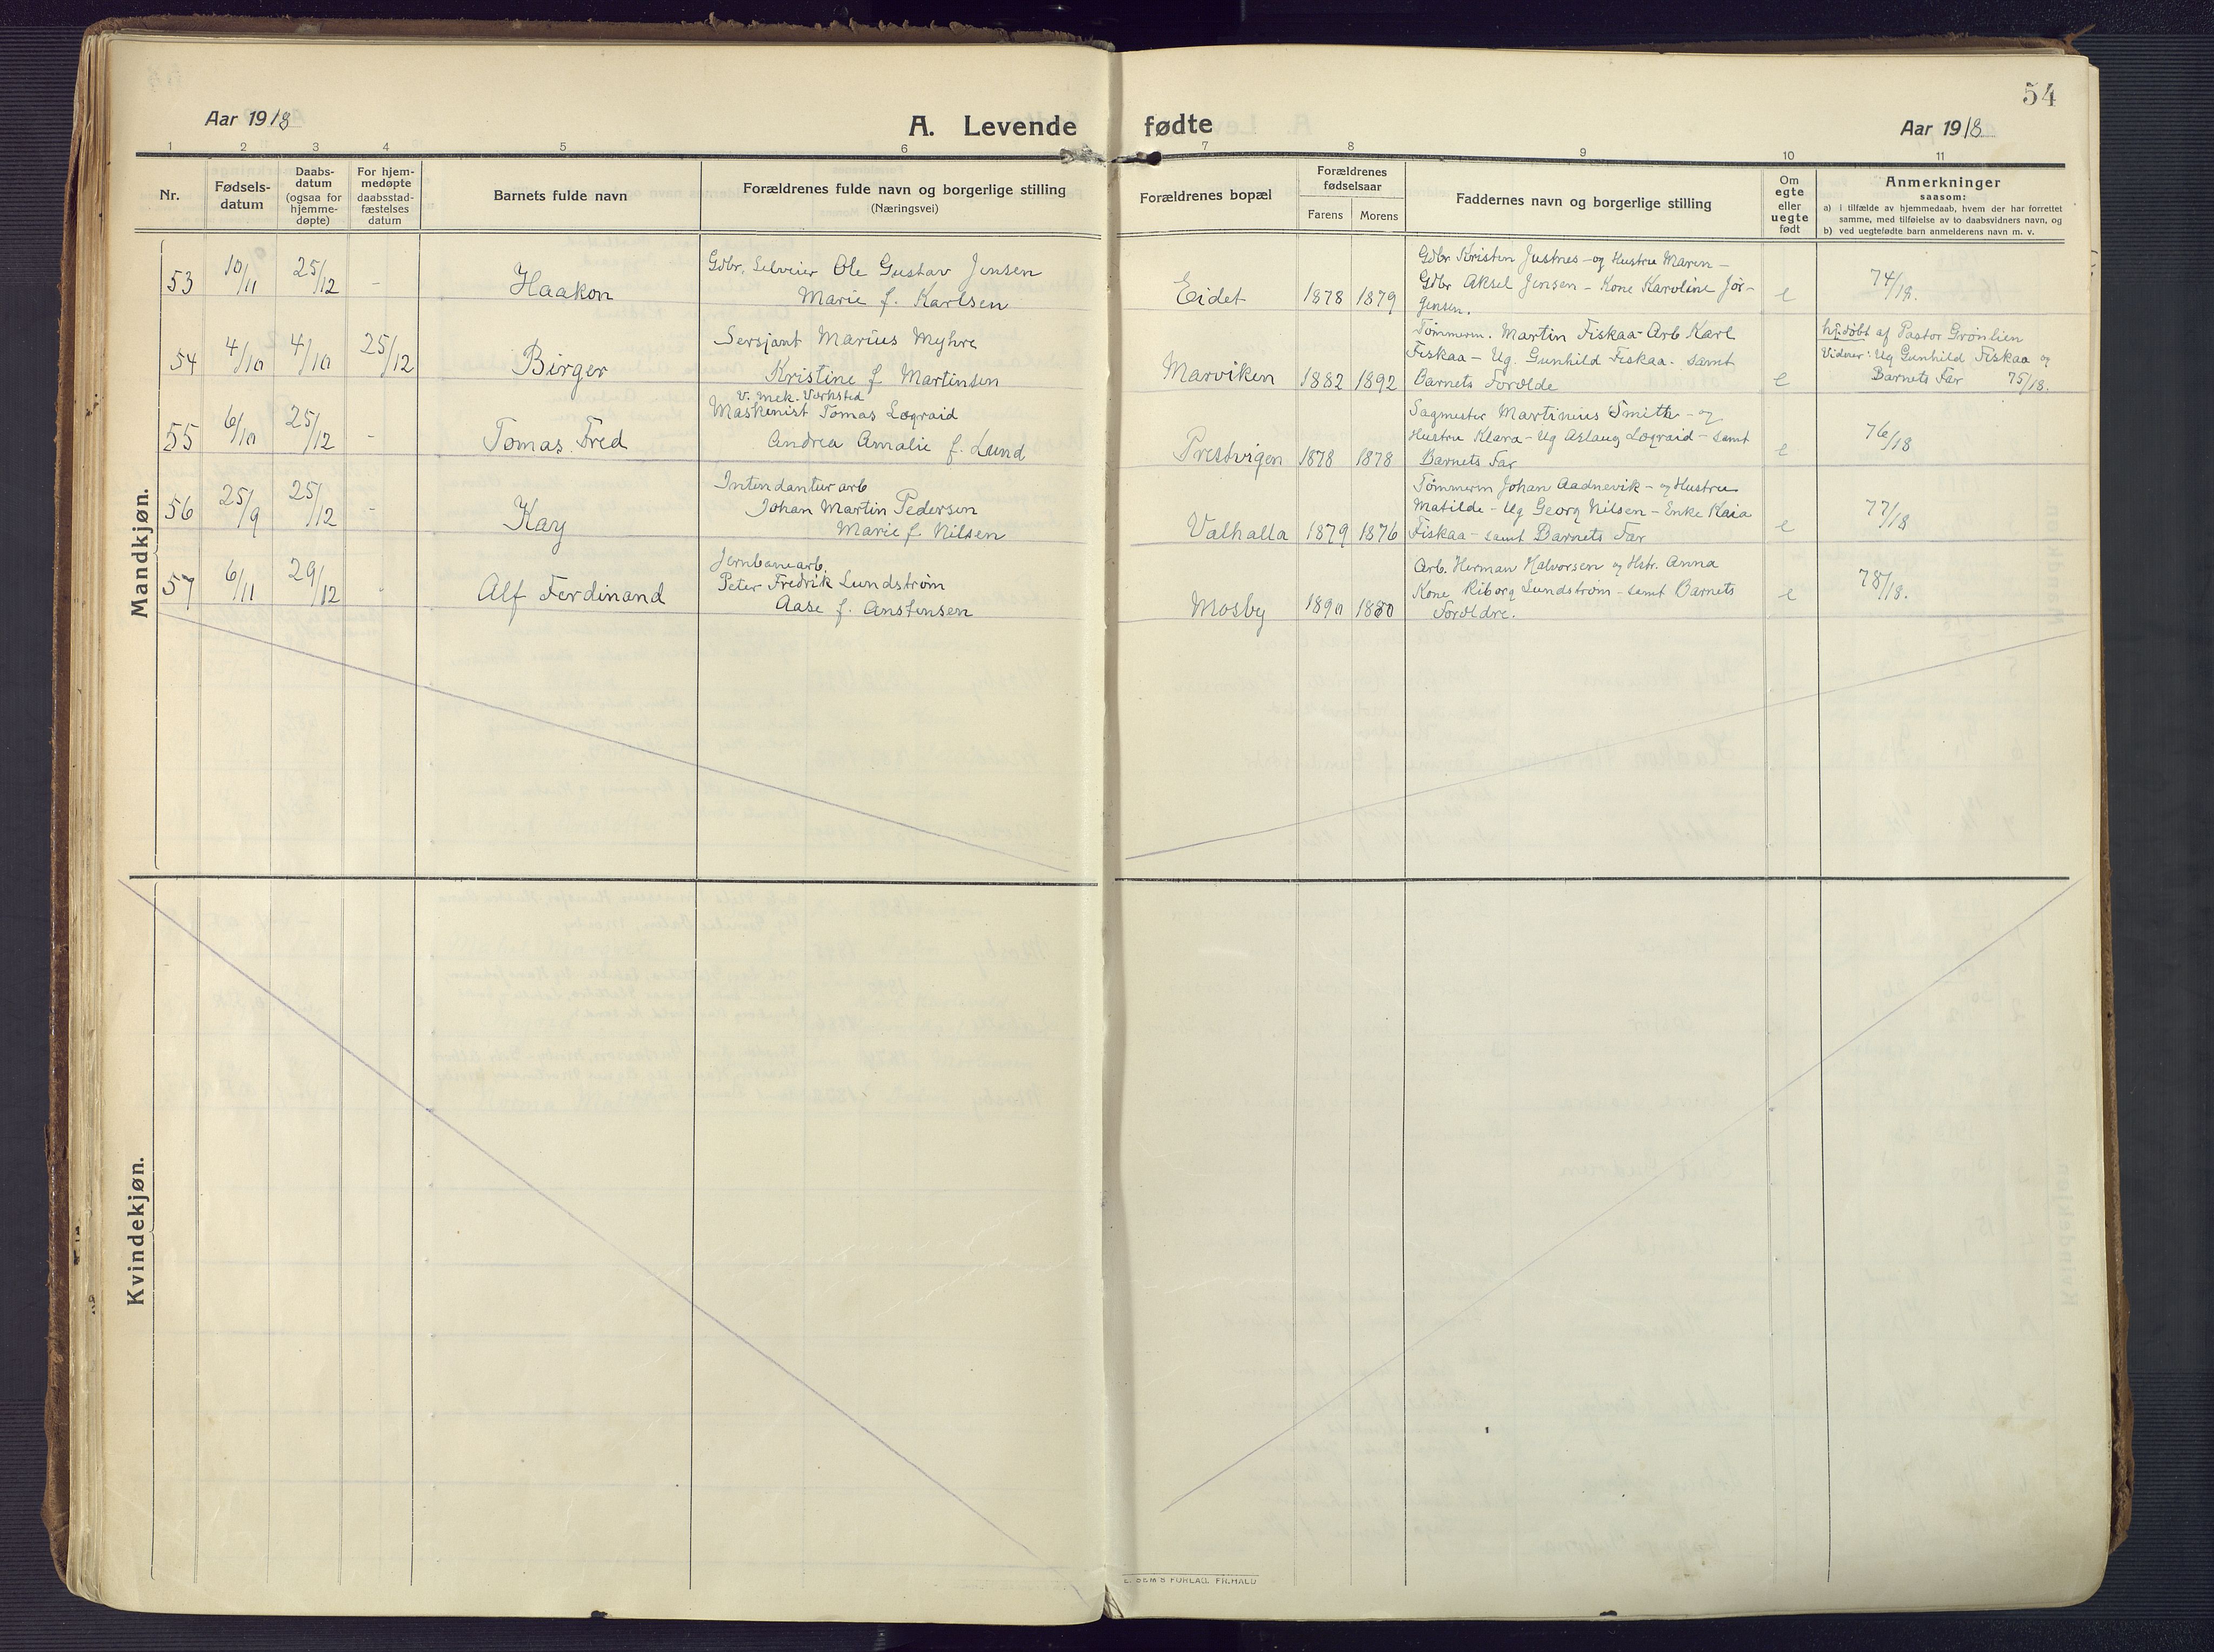 54
Aar 1918
A. Levende fødte
Aar 1918
1 2 3 4 5 6 7 8 9 10 11
Nr.
Fødsels-
datum
Daabs-
datum
(ogsaa for
hjemme-
døpte)
For hjem-
medøpte
daabsstad-
fæstelses
datum
Barnets fulde navn
Forældrenes fulde navn og borgerlige stilling
(Næringsvei)
Forældrenes bopæl
Forældrenes
fødselsaar
Farens Morens
Faddernes navn og borgerlige stilling
Om
egte
eller
uegte
født
Anmerkninger
saasom:
a) i tilfælde av hjemmedaab, hvem der har forrettet
samme, med tilføielse av to daabsvidners navn, og
b) ved uegtefødte barn anmelderens navn m. v.
Mandkjøn.
53 10/11 25/12 - Haakon
Gdbr. Selveier Ole Gustav Jensen
Marie f. Karlsen
Eidet 1878 1879
Gdbr Kristen Justnes - og Hustru Maren -
Gdbr Aksel Jensen - Kone Karoline Jør-
gensen.
e 74/18.
54 4/10 4/10 25/12 Birger
Sersjant Marius Myhre
Kristine f. Martinsen
Marviken 1882 1892
Tømmerm. Martin Fiskaa - Arb Karl
Fiskaa - Ug. Gunhild Fiskaa - samt
Barnets Forælde
e
hj.døbt af Pastor Grønlien
Vidner: Ug Gunhild Fiskaa og
Barnets Far 75/18.
55 6/10 25/12 - Tomas Fred
V. mek. Værksted
Maskinist Tomas Løgraid
Andrea Amalie f. Lund
Prestvigen 1878 1878
Sagmester Martinius Smith - og
Hustru Klara - Ug Aslaug Løgraid - samt
Barnets Far
e 76/18
56 25/9 25/12 - Kay
Intendantur arb
Johan Martin Pedersen
Marie f. Nilsen
Valhalla 1879 1876
Tømmerm Johan Aadnevik - og Hustru
Matilde - Ug Georg Nilsen - Enke Kaia
Fiskaa - samt Barnets Far
e 77/18
57 6/11 29/12 - Alf Ferdinand
Jernbanearb.
Peter Fredrik Lundstrøm
Aase f. Anstensen
Mosby 1890 1880
Arb. Herman Halvorsen og Hstr. Anna
Kone Riborg Lundstrøm - samt Barnets
Forældre.
e 78/18.
Kvindekjøn.
E. SEM'S FORLAG, FR.HALD